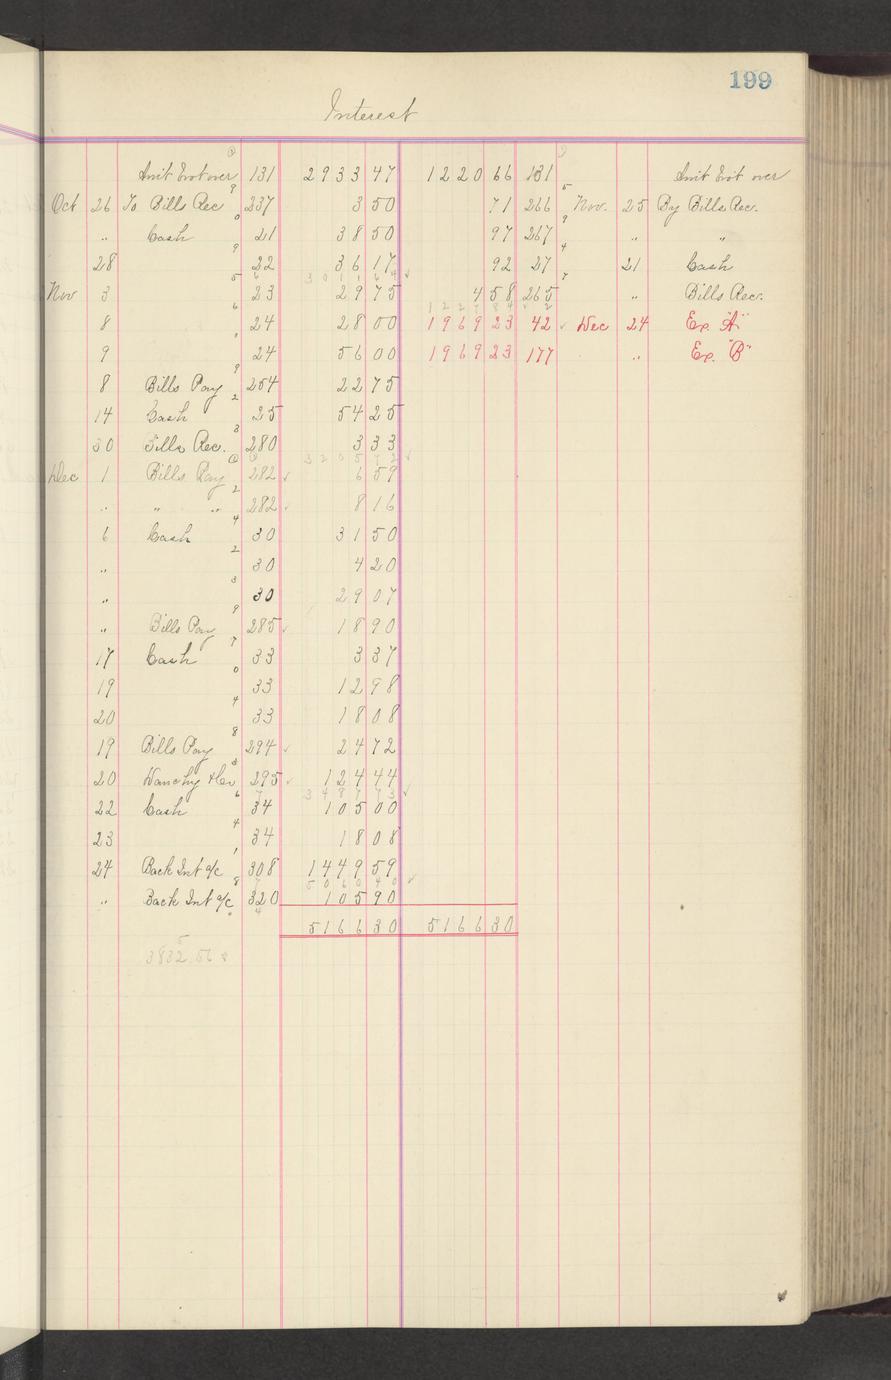 199
Interest
Amt brot over 131 2933 47 1220 66 131 Amt brot over
Oct 26 To Bills Rec 237 3 50 71 266 Nov. 25 By Bills Rec.
" Cash 21 38 50 97 267 " "
28 22 36 17 92 27 21 Cash
3011 64
Nov 3 23 29 75 4 58 265 " Bills Rec.
1227 84
8 24 28 00 1969 23 42 Dec 24 Ex. "A"
9 24 56 00 1969 23 177 " Ex. "B"
8 Bills Pay 254 22 75
14 Cash 25 54 25
30 Bills Rec. 280 3 33
3205 72
Dec 1 Bills Pay 282 6 59
" " " 282 8 16
6 Cash 30 31 50
" 30 4 20
" 30 29 07
" Bills Pay 285 18 90
17 Cash 33 3 37
19 33 12 98
20 33 18 08
19 Bills Pay 294 24 72
20 295 124 44
3487 73
22 Cash 34 105 00
23 34 18 08
24 Back Int a/c 308 1449 59
5060 40
" Back Int a/c 320 105 90
5166 30 5166 30
3832.56